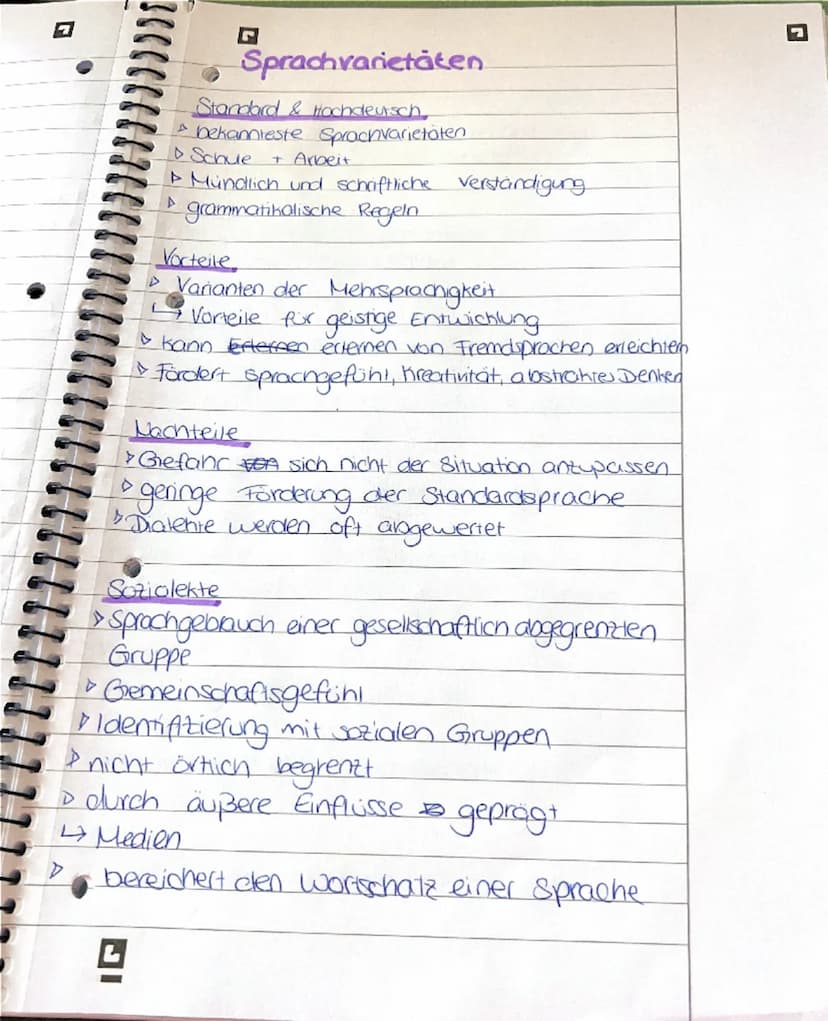 Sprachvarietäten
Standard & Hochdeutsch
▹ bekannteste Sprachvarietäten
▹ Schule + Arbeit
▹ Mündlich und schriftliche Verständigung
▹ grammatikalische Regeln
Vorteile
▹ Varianten der Mehrsprachigkeit
↳ Vorteile für geistige Entwicklung
▹ kann Erlernen erlernen von Fremdsprachen erleichtern
▹ Fördert Sprachgefühl, Kreativität, abstraktes Denken
Nachteile
▹ Gefahr von sich nicht der Situation anzupassen
▹ geringe Förderung der Standardsprache
▹ Dialekte werden oft abgewertet
Soziolekte
▹ Sprachgebrauch einer gesellschaftlich abgegrenzten
Gruppe
▹ Gemeinschaftsgefühl
▹ Identifizierung mit sozialen Gruppen
▹ nicht örtlich begrenzt
▹ durch äußere Einflüsse geprägt
↳ Medien
▹ bereichert den Wortschatz einer Sprache